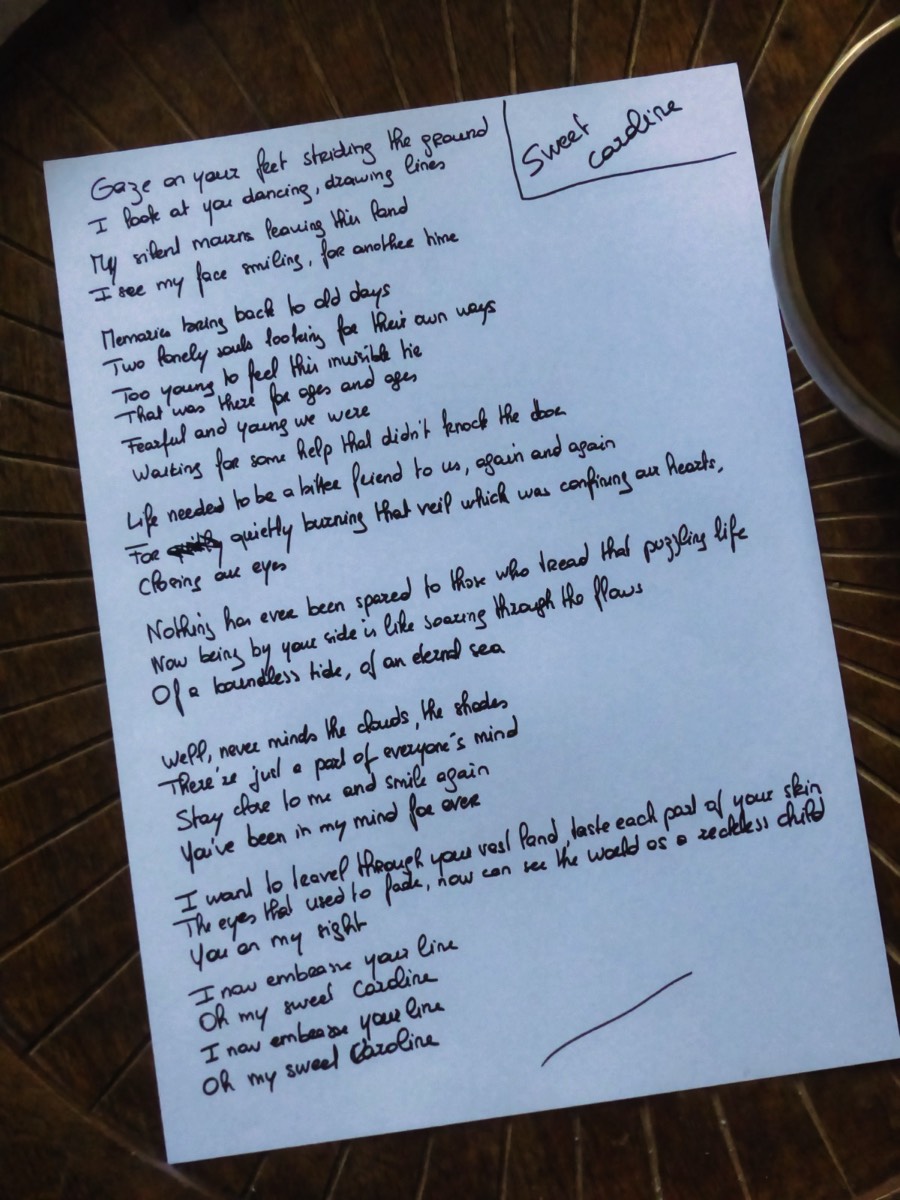 Sweet
Caroline
Gaze on your feet striding the ground
I look at you dancing, drawing lines
My silent mourns leaving this land
I see my face smiling, for another time
Memories bring back to old days
Two lonely souls looking for their own ways
Too young to feel this invisible tie
That was there for ages and ages
Fearful and young we were
Waiting for some help that didn't knock the door
Life needed to be a bitter friend to us, again and again
For quietly burning that veil which was confining our hearts,
Closing our eyes
Nothing has ever been spared to those who tread that puzzling life
Now being by your side is like soaring through the flows
Of a boundless tide, of an eternal sea
Well, never minds the clouds, the shades
There're just a part of everyone's mind
Stay close to me and smile again
You've been in my mind for ever
I want to travel through your vast land, taste each part of your skin
The eyes that used to fade, now can see the world as a reckless child
You on my right
I now embrasse your line
Oh my sweet Caroline
I now embrasse your line
Oh my sweet Caroline